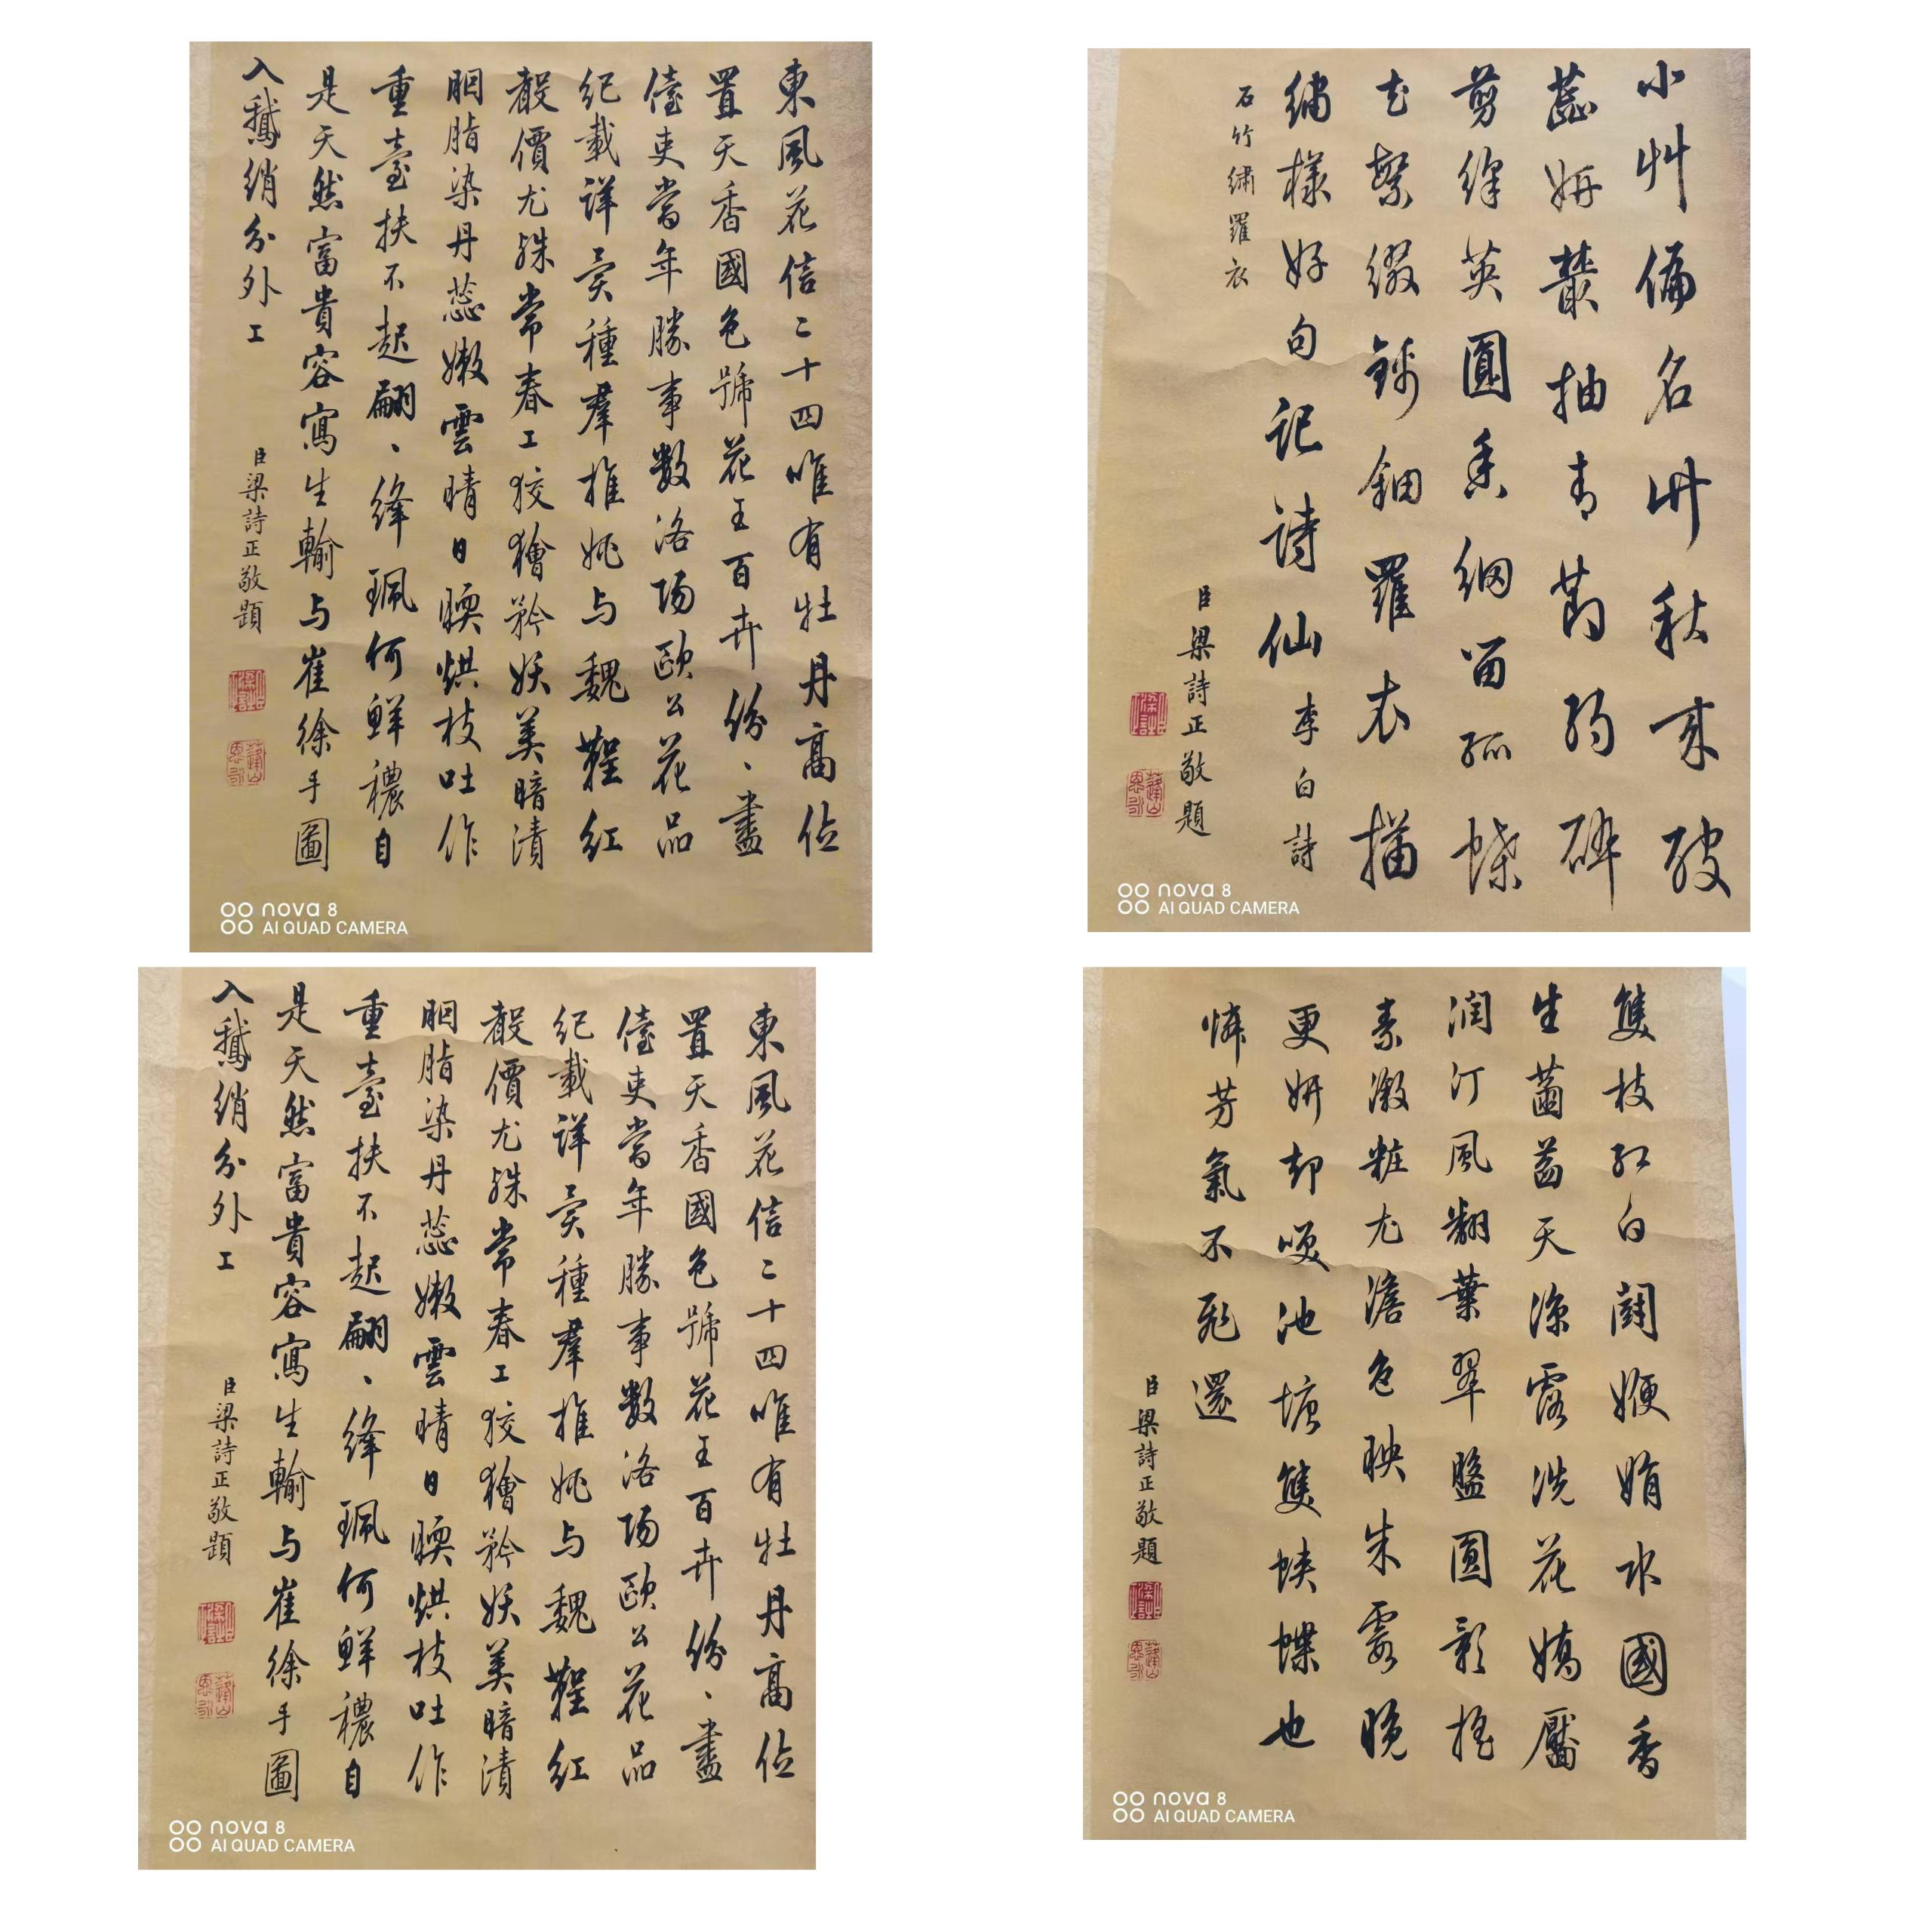 東風花信二十四唯有牡丹高位
置天香國色號花王百卉紛、盡
儓吏當年勝事數洛陽歐公花品
紀載詳異種羣推姚与魏鞓紅
聲價尤殊常春工狡獪矜妖美暗漬
胭脂染丹蕊嫩雲晴日暖烘枝吐作
重臺扶不起翩、絳珮何鮮穠自
是天然富貴容寫生輸与崔徐手圖
入鵝綃分外工
臣梁詩正敬題
nova 8
AI QUAD CAMERA
小艸偏名竹秋來破
蕊妍叢抽青莭約碎
剪絳英圓香細留孤蝶
花繁綴錦鈿羅衣描
繡樣好句記詩仙李白詩
石竹繡羅衣
臣梁詩正敬題
nova 8
AI QUAD CAMERA
東風花信二十四唯有牡丹高位
置天香國色號花王百卉紛、盡
儓吏當年勝事數洛陽歐公花品
紀載詳異種羣推姚与魏鞓紅
聲價尤殊常春工狡獪矜妖美暗漬
胭脂染丹蕊嫩雲晴日暖烘枝吐作
重臺扶不起翩、絳珮何鮮穠自
是天然富貴容寫生輸与崔徐手圖
入鵝綃分外工
臣梁詩正敬題
nova 8
AI QUAD CAMERA
雙枝紅白鬪㛹娟水國香
生菡萏天涼露洗花嬌靨
潤汀風翻葉翠盤圓影搖
素瀲粧尤澹色映朱霞晚
更妍却咲池塘雙蛺蝶也
憐芳氣不飛還
臣梁詩正敬題
nova 8
AI QUAD CAMERA